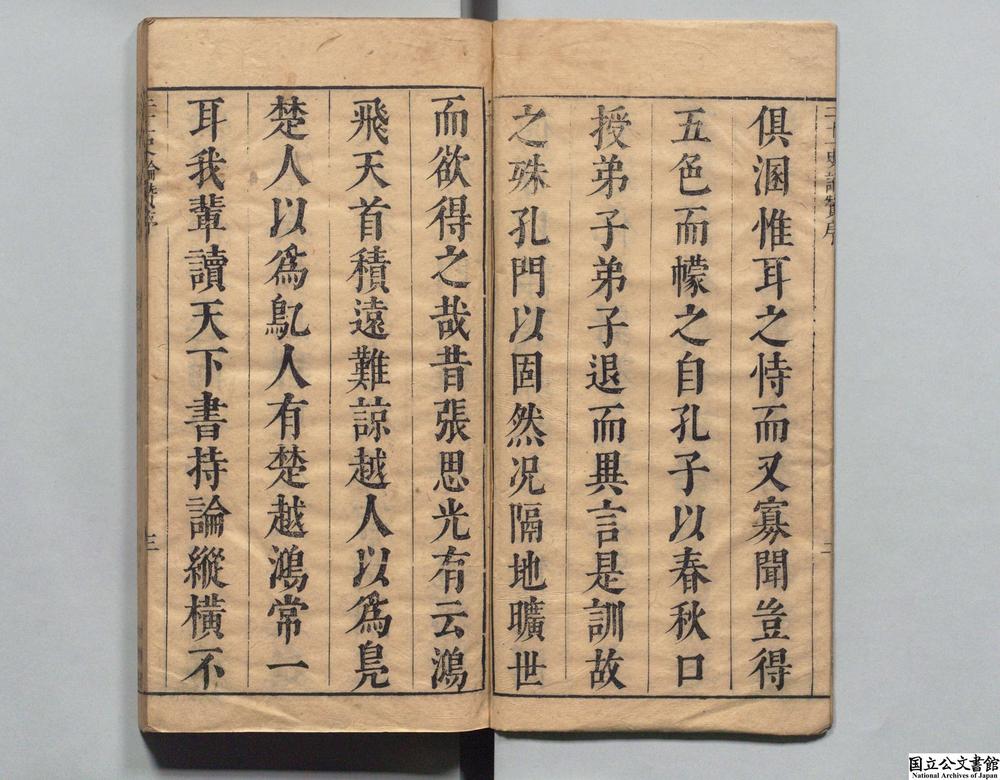 俱溷惟耳之恃而又寡聞豈得
五色而幪之自孔子以春秋口
授弟子弟子退而異言是訓故
之殊孔門以固然况隔地曠世
而欲得之哉昔張思光有云鴻
飛天首積遠難諒越人以爲鳧
楚人以爲鳦人有楚越鴻常一
耳我輩讀天下書持論縱橫不
三
国立公文書館
National Archives of Japan